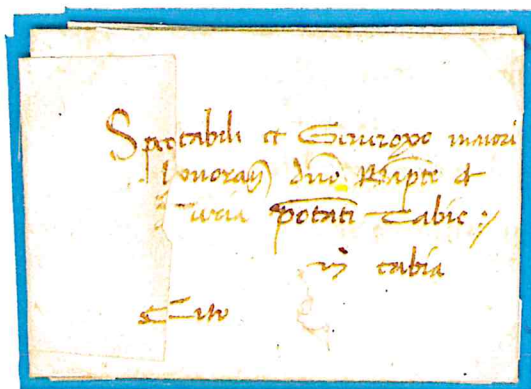 Spectabili et Generoso maiori
honoran) dno Bapte d
uria potati Tabie :/
in tabia
Cito